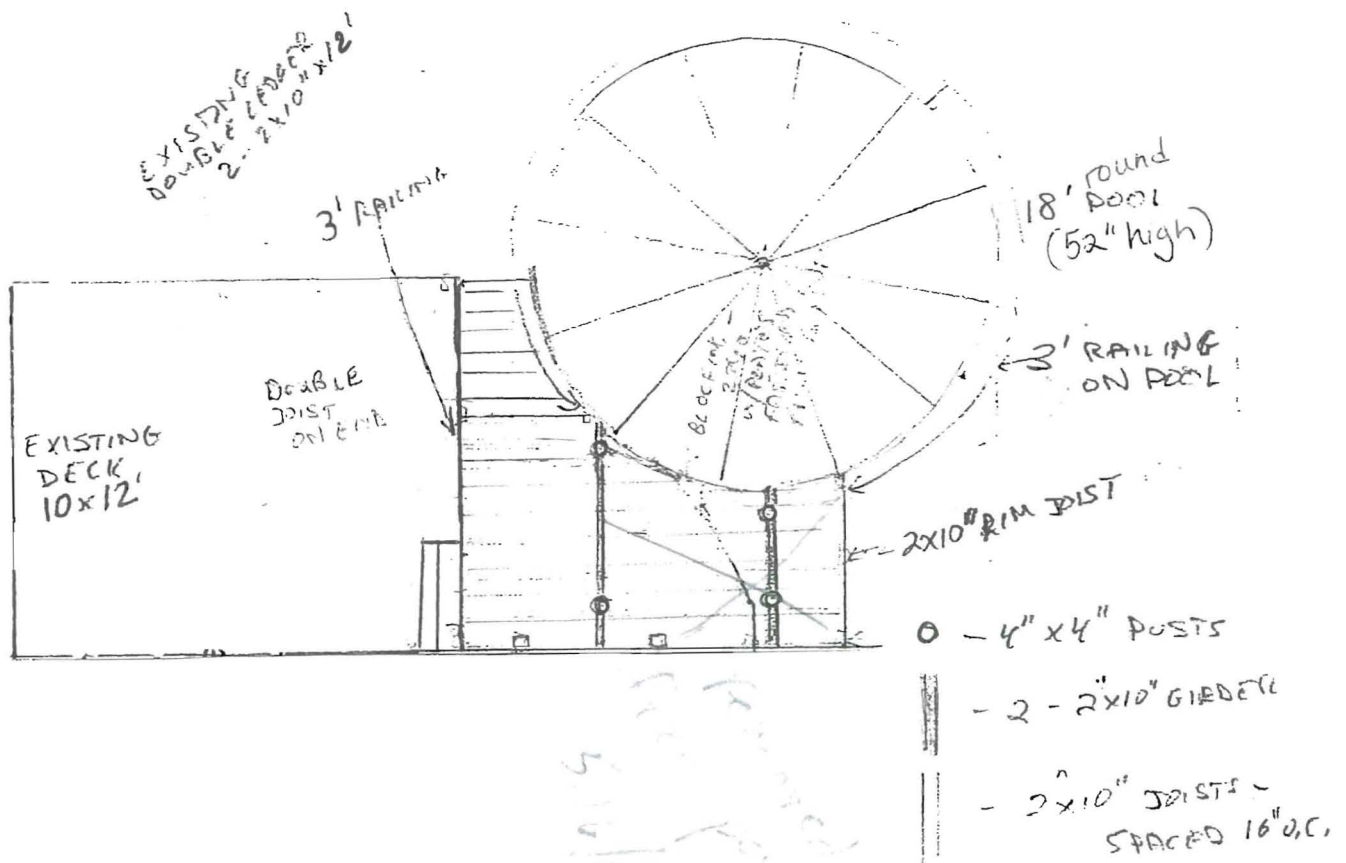 EXISTING
DOUBLE LEDGER
2 - 2x10"x12'
3' RAILING
18' round
POOL
(52" high)
3' RAILING
ON POOL
DOUBLE
JOIST
ON END
EXISTING
DECK
10x12'
BLOCKING
2x10"RIM JOIST
O - 4" x4" POSTS
- 2 - 2"x10" GIRDER
- 2x10" JOISTS -
SPACED 16" O.C.